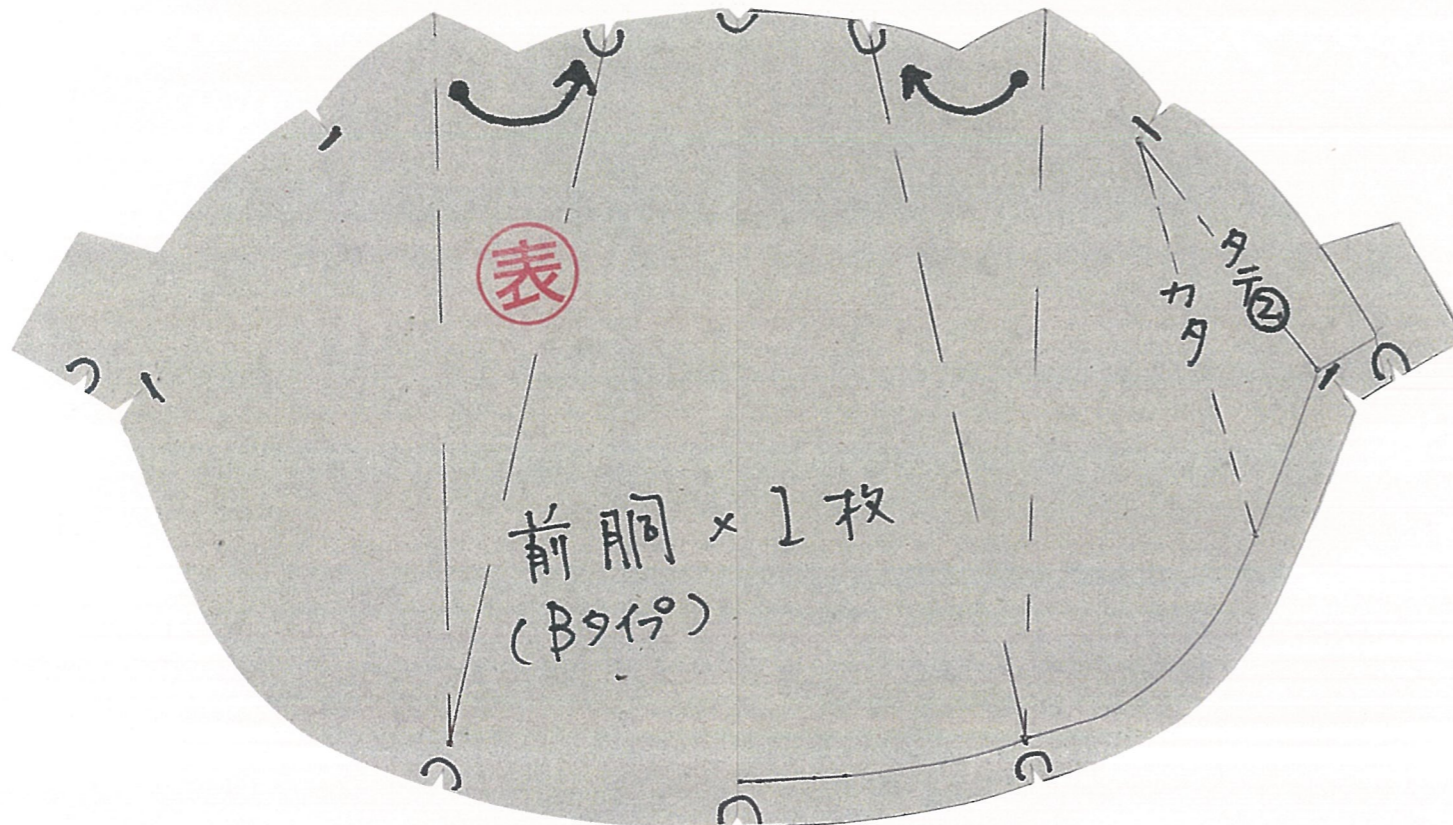 表
タテ②
カタ
前胴 × 1枚
(Bタイプ)